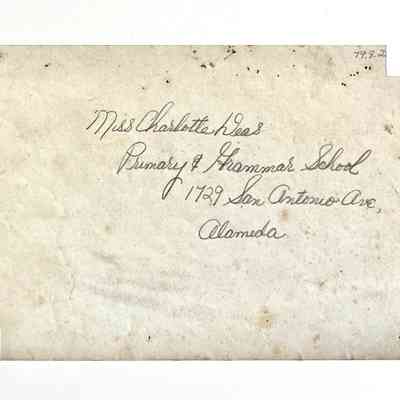 79.9.2
Miss Charlotte Weas
Primary & Grammar School
1729 San Antonio Ave,
Alameda